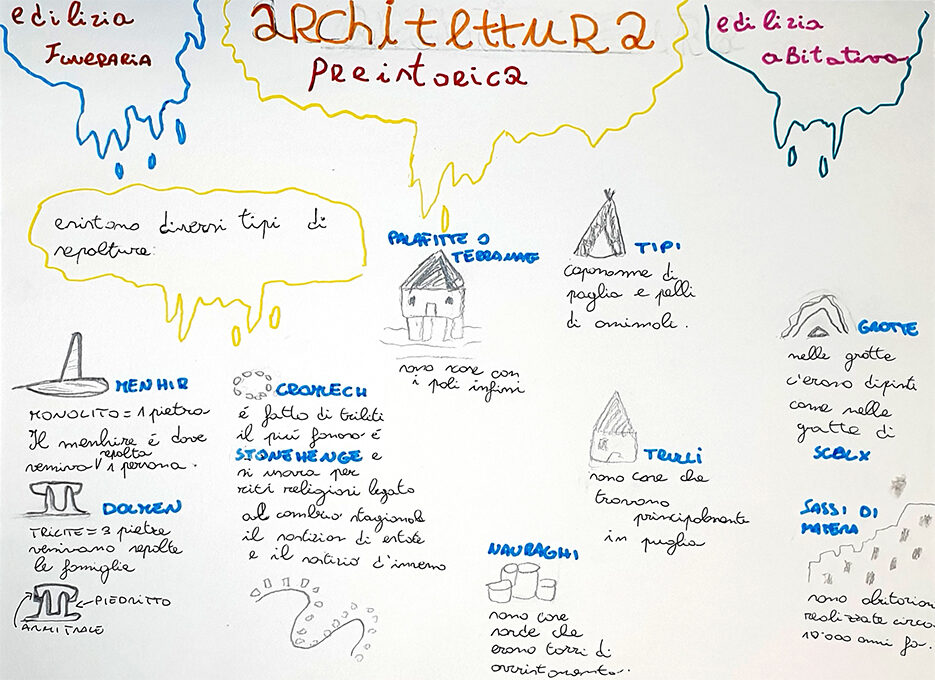 edilizia
FUNERARIA
ARCHITETTURA
PREISTORICA
edilizia
abitativa
esistono diversi tipi di
sepolture:
MENHIR
MONOLITO = 1 pietra
Il menhire é dove
sepolta
veniva 1 persona.
DOLMEN
TRILITE = 3 pietre
venivano sepolte
le famiglie
PIEDRITTO
CROMLECH
é fatto di triliti
il piú famoso é
STONEHENGE e
si usava per
riti religiosi legato
al cambio stagionale
il sostizion di estate
e il sostizio d'inverno
PALAFITTE O
TERRAMARE
sono case con
i pali infissi
TIPI
capannne di
paglia e pelli
di animale.
TRULLI
sono case che
trovano
principalmente
in puglia
NAURAGHI
sono case
sarde che
erano torri di
GROTTE
nelle grotte
c'erano dipinti
come nelle
grotte di
SASSI DI
MATERA
sono abitazion
realizzate circa
10'000 anni fa.